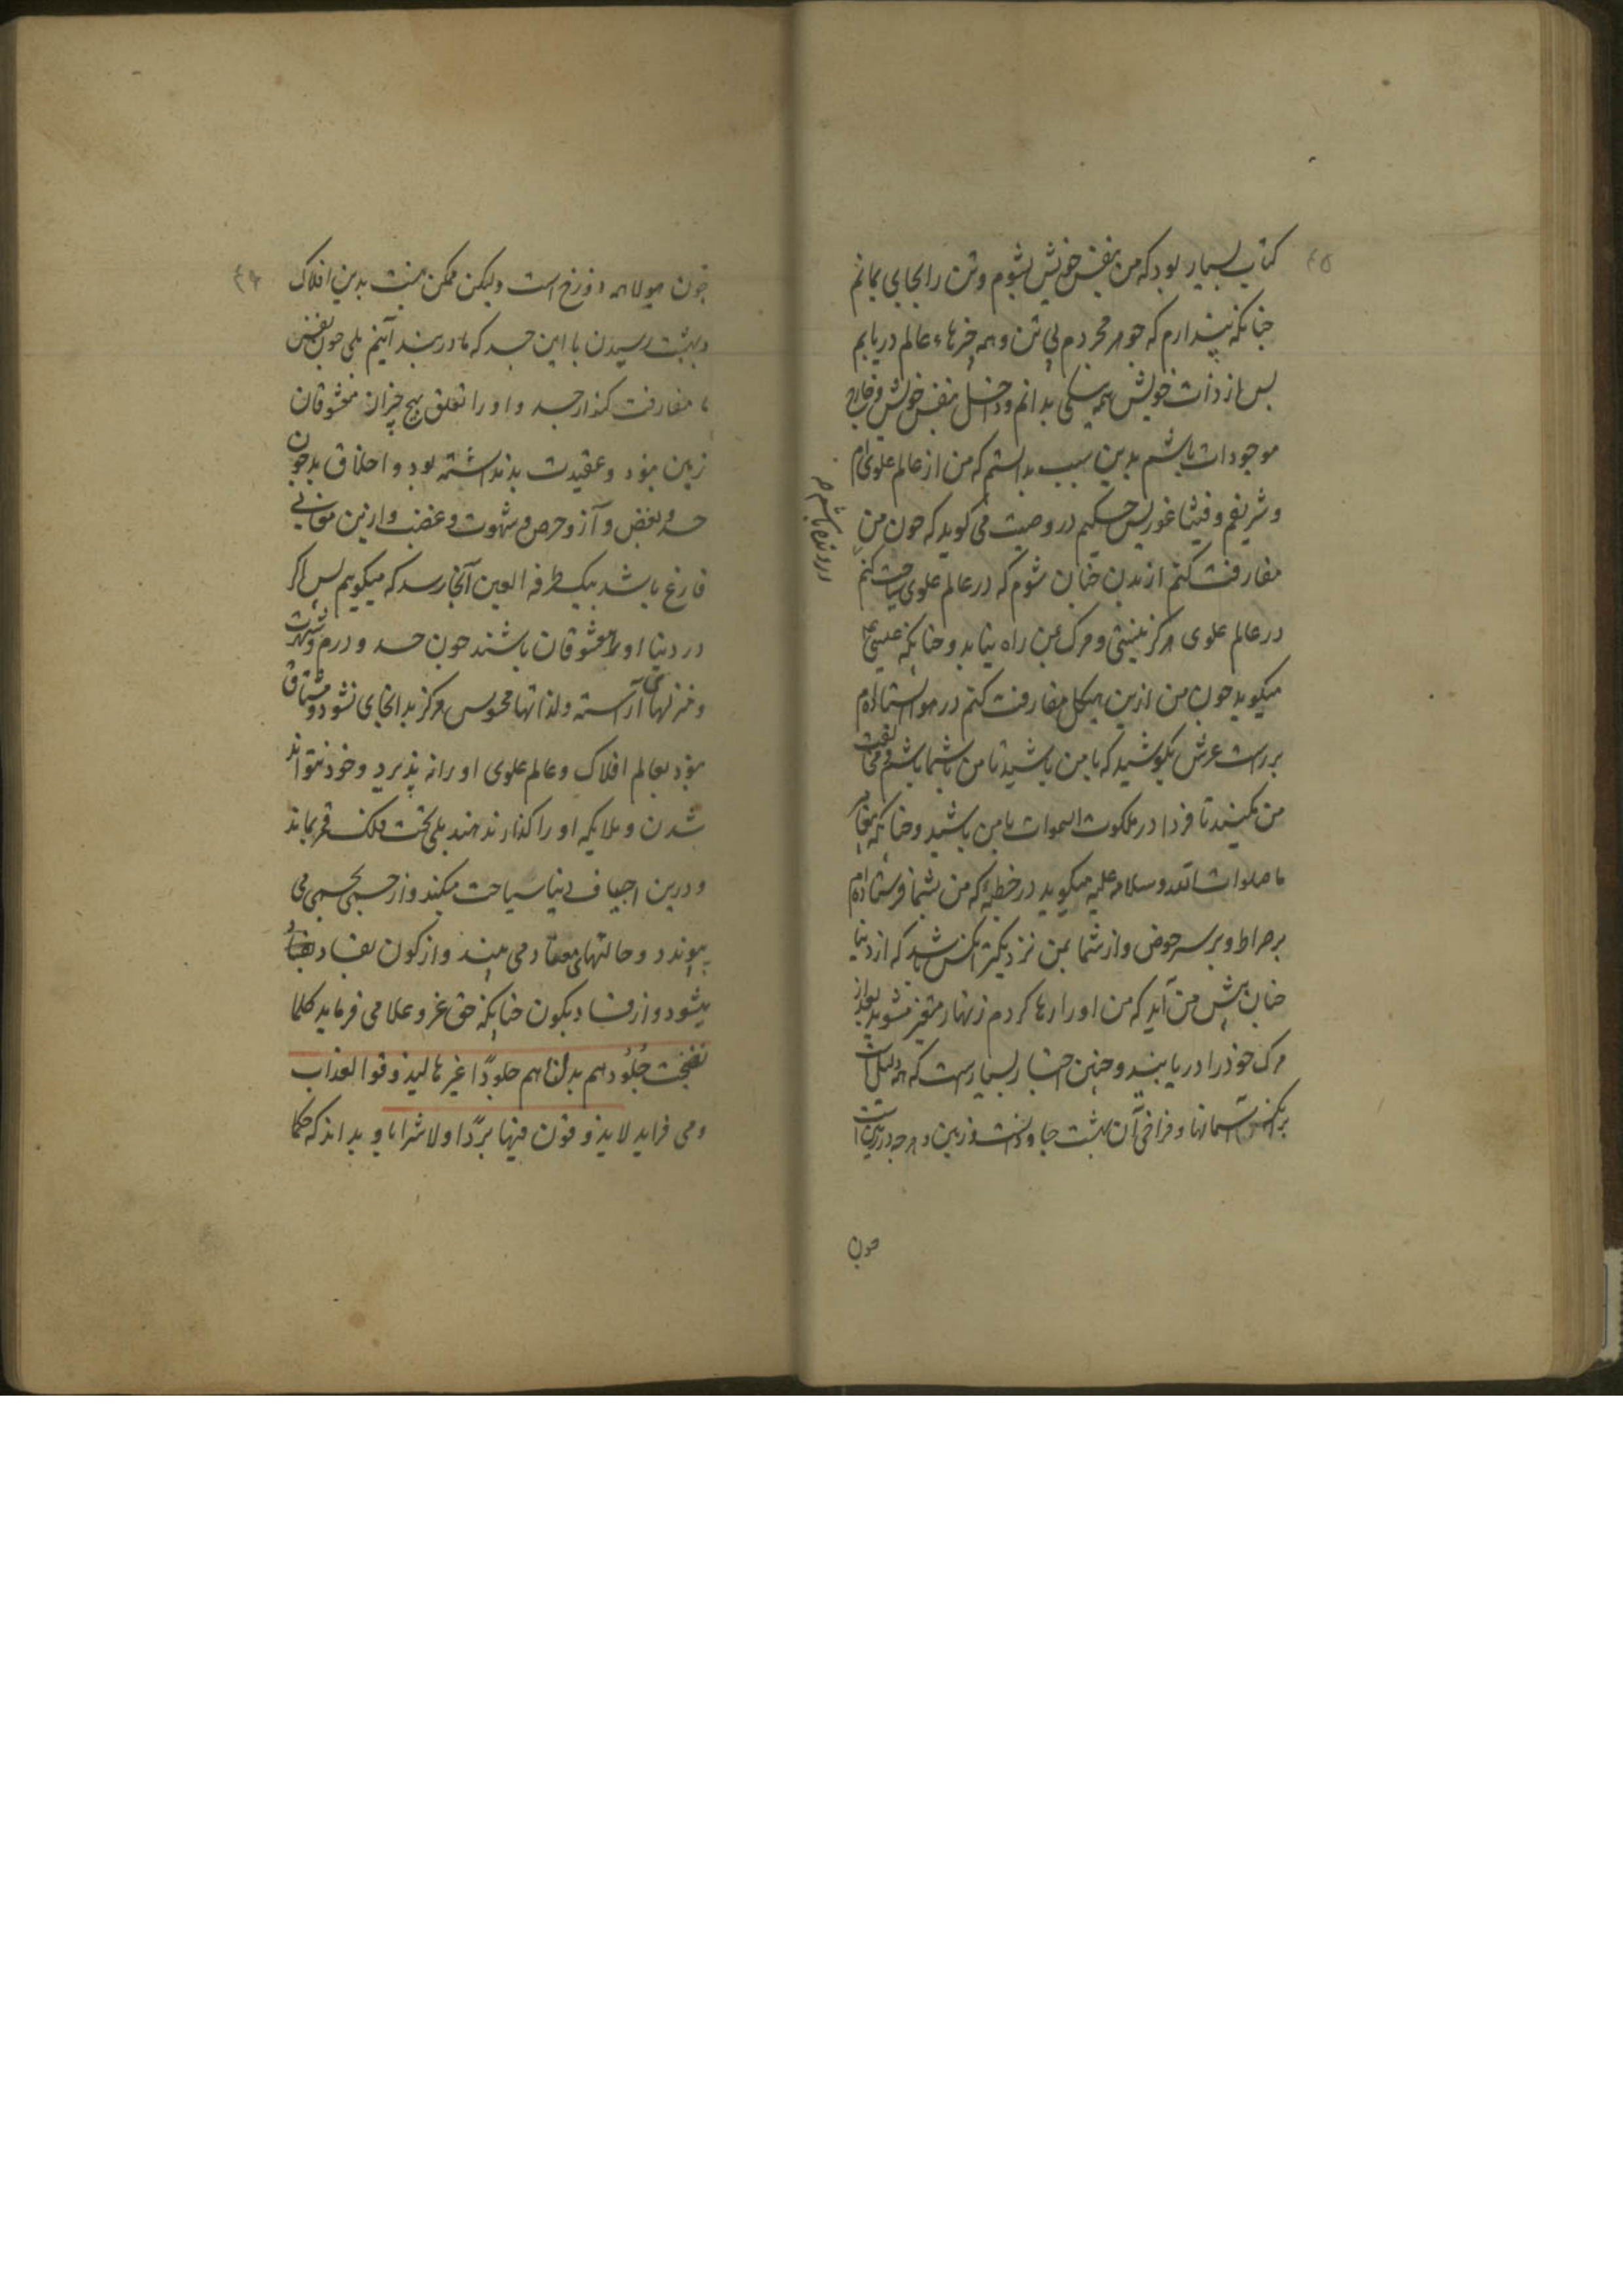 ٤٥
کتاب بسیار بود که من بنفس خویش بشوم و تن را بجایی بمانم
جنانکه پندارم که جوهر مجردم بی تن و همه خبرهاء عالم دریابم
بس از ذات خویش همه نیکی بدانم و داخل بنفس خویش و خارج
موجودات باشم بدین سبب بدانستم که من از عالم علوی ام
و شریفم و فیثاغورس حکیم در وصیت می کوید که جون من
مفارقت کنم از بدن جنان شوم که در عالم علوی سیاحت کنم
در عالم علوی هرکز نیستی و مرک بمن راه نیابد و جنانکه عیسی
میکوید جون من ازین هیکل مفارقت کنم در هوا ایستاده ام
بر راست عرش بکوشید که با من باشید تا من با شما باشم و مخالفت
من مکنید تا فردا در ملکوت السموات با من باشید و جنانکه پیغامبر
ما صلوات الله و سلامه علیه میکوید در خطبهٔ که من بشما فرستاده ام
بر صراط و بر سر حوض و از شما بمن نزدیکتر آنکس باشد که از دنیا
جنان پیش من آید که من او را رها کردم زنهار متغیر مشوید بعد از
مرک خود را دریابید و جنین اخبار بسیارست که همه دلیل است
برآنکه آسمانها و فراخی آن بهشت جاودانست و زمین و هر جه در زمین است
جون
٤٦
جون هیولا همه دوزخ است ولیکن ممکن نیست بدین افلاک
و بهشت رسیدن با این جسد که ما در بند آنیم بلی جون نفس
ما مفارقت کند از جسد و او را تعلق بهیج چیز از معشوقان
زمین نبود و عقیدت بد نداشته بود و اخلاق بد جون
حسد و بغض و آز و حرص و شهوت و غضب و ازین معانی
فارغ باشد بیک طرفه العین آنجا رسد که میکوییم بس اکر
در دنیا او را معشوقان باشند جون جسد و درم و شهوت
و منزلهای آراسته و لذاتها محسوس هرکز بدانجای نشود و مشتاق
نبود بعالم افلاک و عالم علوی او را نه پذیرد و خود نتواند
شدن و ملایکه او را کذار ندهند بلی تحت فلک قمر بماند
و درین اجساف دنیا سیاحت میکند و از جسمی بجسمی می
پیوندد و حالتهای معتاد می بیند و از کون بفساد
میشود و از فساد بکون جنانکه حق عز و علا می فرماید کلما
نضجت جُلُودهم بدلناهم جلودًا غیرها لیذوقوا العذاب
و می فراید لایذوقون فیها بردًا و لا شرابا و بداند که حکما